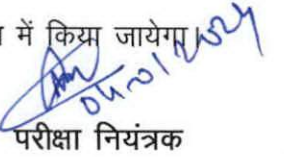 में किया जायेगा।
04/01/2024
परीक्षा नियंत्रक